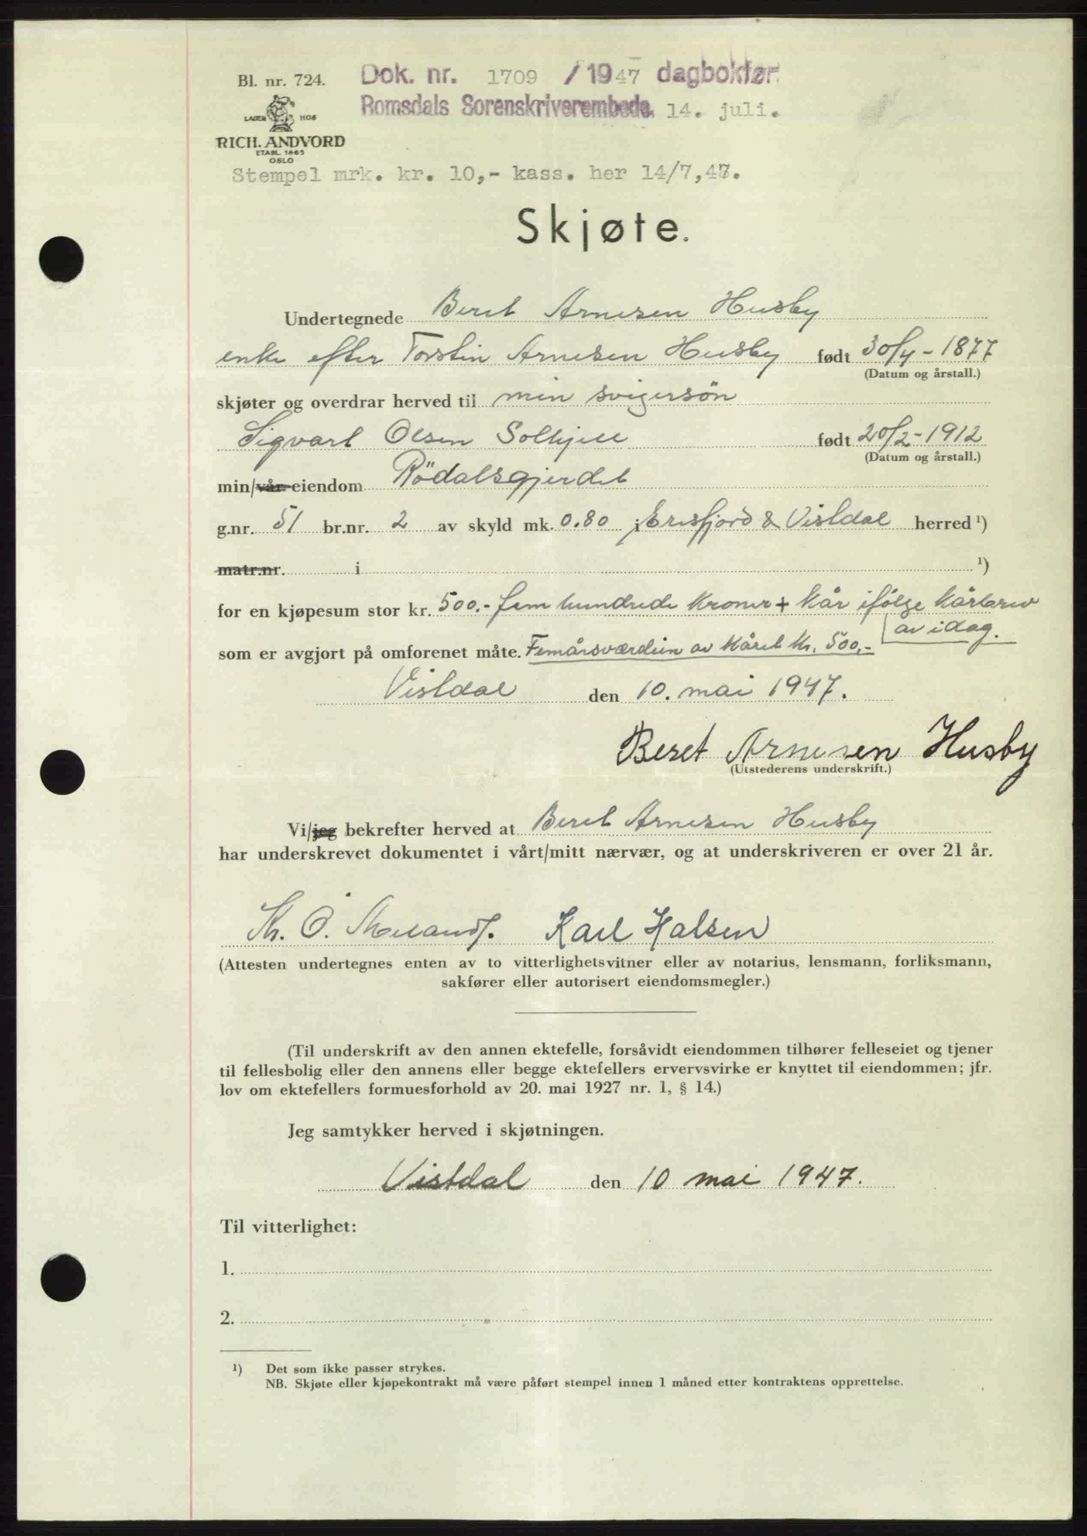 Bl. nr. 724.
Dok. nr. 1709 / 1947 dagbokfør.
Romsdals Sorenskriverembede. 14. juli.
LAGER HOS
RICH. ANDVORD
ETABL. 1865
OSLO
Stempel mrk. kr. 10,- kass. her 14/7,47.
Skjøte.
Undertegnede Beret Arnesen Husby
enke efter Torstin Arnesen Husby født 30/4-1877
(Datum og årstall.)
skjøter og overdrar herved til min svigersön
Sigvart Olsen Solhjell født 20/2-1912
(Datum og årstall.)
min/vår eiendom Rödalsgjerdet
g.nr. 51 br.nr. 2 av skyld mk. 0.80 i Eresfjord & Vistdal herred ¹)
matr.nr. i ¹)
for en kjøpesum stor kr. 500.- fem hundrede kroner + kår ifölge kårbrev
av idag.
som er avgjort på omforenet måte. Femårsværdien av kåret kr. 500,-
Vistdal den 10. mai 1947.
Beret Arnesen Husby
(Utstederens underskrift.)
Vi/jeg bekrefter herved at Beret Arnesen Husby
har underskrevet dokumentet i vårt/mitt nærvær, og at underskriveren er over 21 år.
O. Karl Halsen
(Attesten undertegnes enten av to vitterlighetsvitner eller av notarius, lensmann, forliksmann,
sakfører eller autorisert eiendomsmegler.)
(Til underskrift av den annen ektefelle, forsåvidt eiendommen tilhører felleseiet og tjener
til fellesbolig eller den annens eller begge ektefellers ervervsvirke er knyttet til eiendommen; jfr.
lov om ektefellers formuesforhold av 20. mai 1927 nr. 1, § 14.)
Jeg samtykker herved i skjøtningen.
Vistdal den 10 mai 1947.
Til vitterlighet:
1.
2.
¹) Det som ikke passer strykes.
NB. Skjøte eller kjøpekontrakt må være påført stempel innen 1 måned etter kontraktens opprettelse.